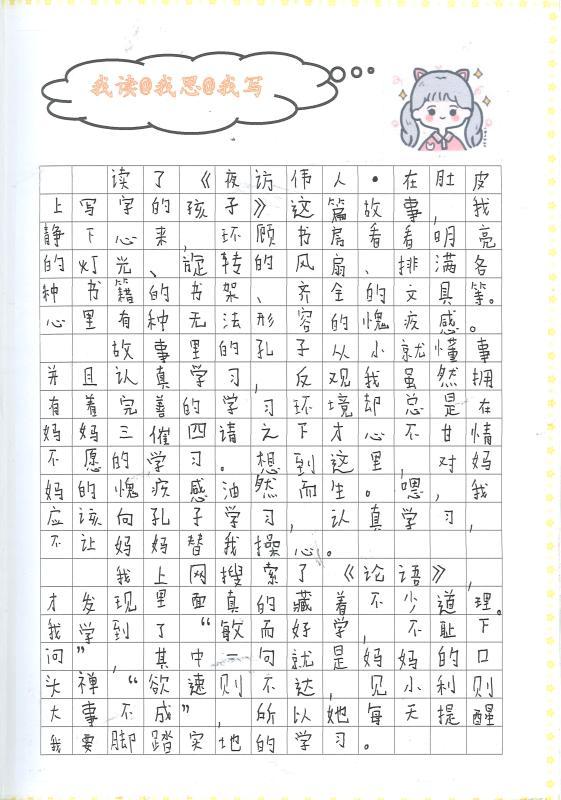 我读@我思@我写
读了《夜访伟人·在肚皮
上写字的孩子》这篇故事，我
静下心来，环顾书房看看明亮
的灯光、旋转的风扇、排满各
种书籍的书架、齐全的文具等。
心里有种无法形容的愧疚感。
故事里的孔子从小就懂事
并且认真学习，反观我虽然拥
有着完善的学习环境却总是在
妈妈三催四请之下才心不甘情
不愿的学习。想到这里，对妈
妈的愧疚感油然而生。嗯，我
应该向孔子学习，认真学习，
不让妈妈替我操心。
我上网搜索了《论语》，
才发现里面真的藏着不少道理。
我学到了“敏而好学，不耻下
问”，其中一句就是妈妈的口
头禅“欲速则不达，见小利则
大事不成”，所以她每天提醒
我要脚踏实地的学习。